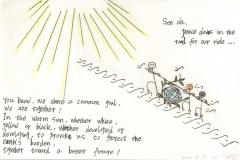 See ok,
peace dives in the
road for our ride...
You know, we share a common goal,
we are together!
In the warm sun, whether white,
yellow or black, whether developed or
developing, to promote us to protect the
earth's burden,
together toward a better future!